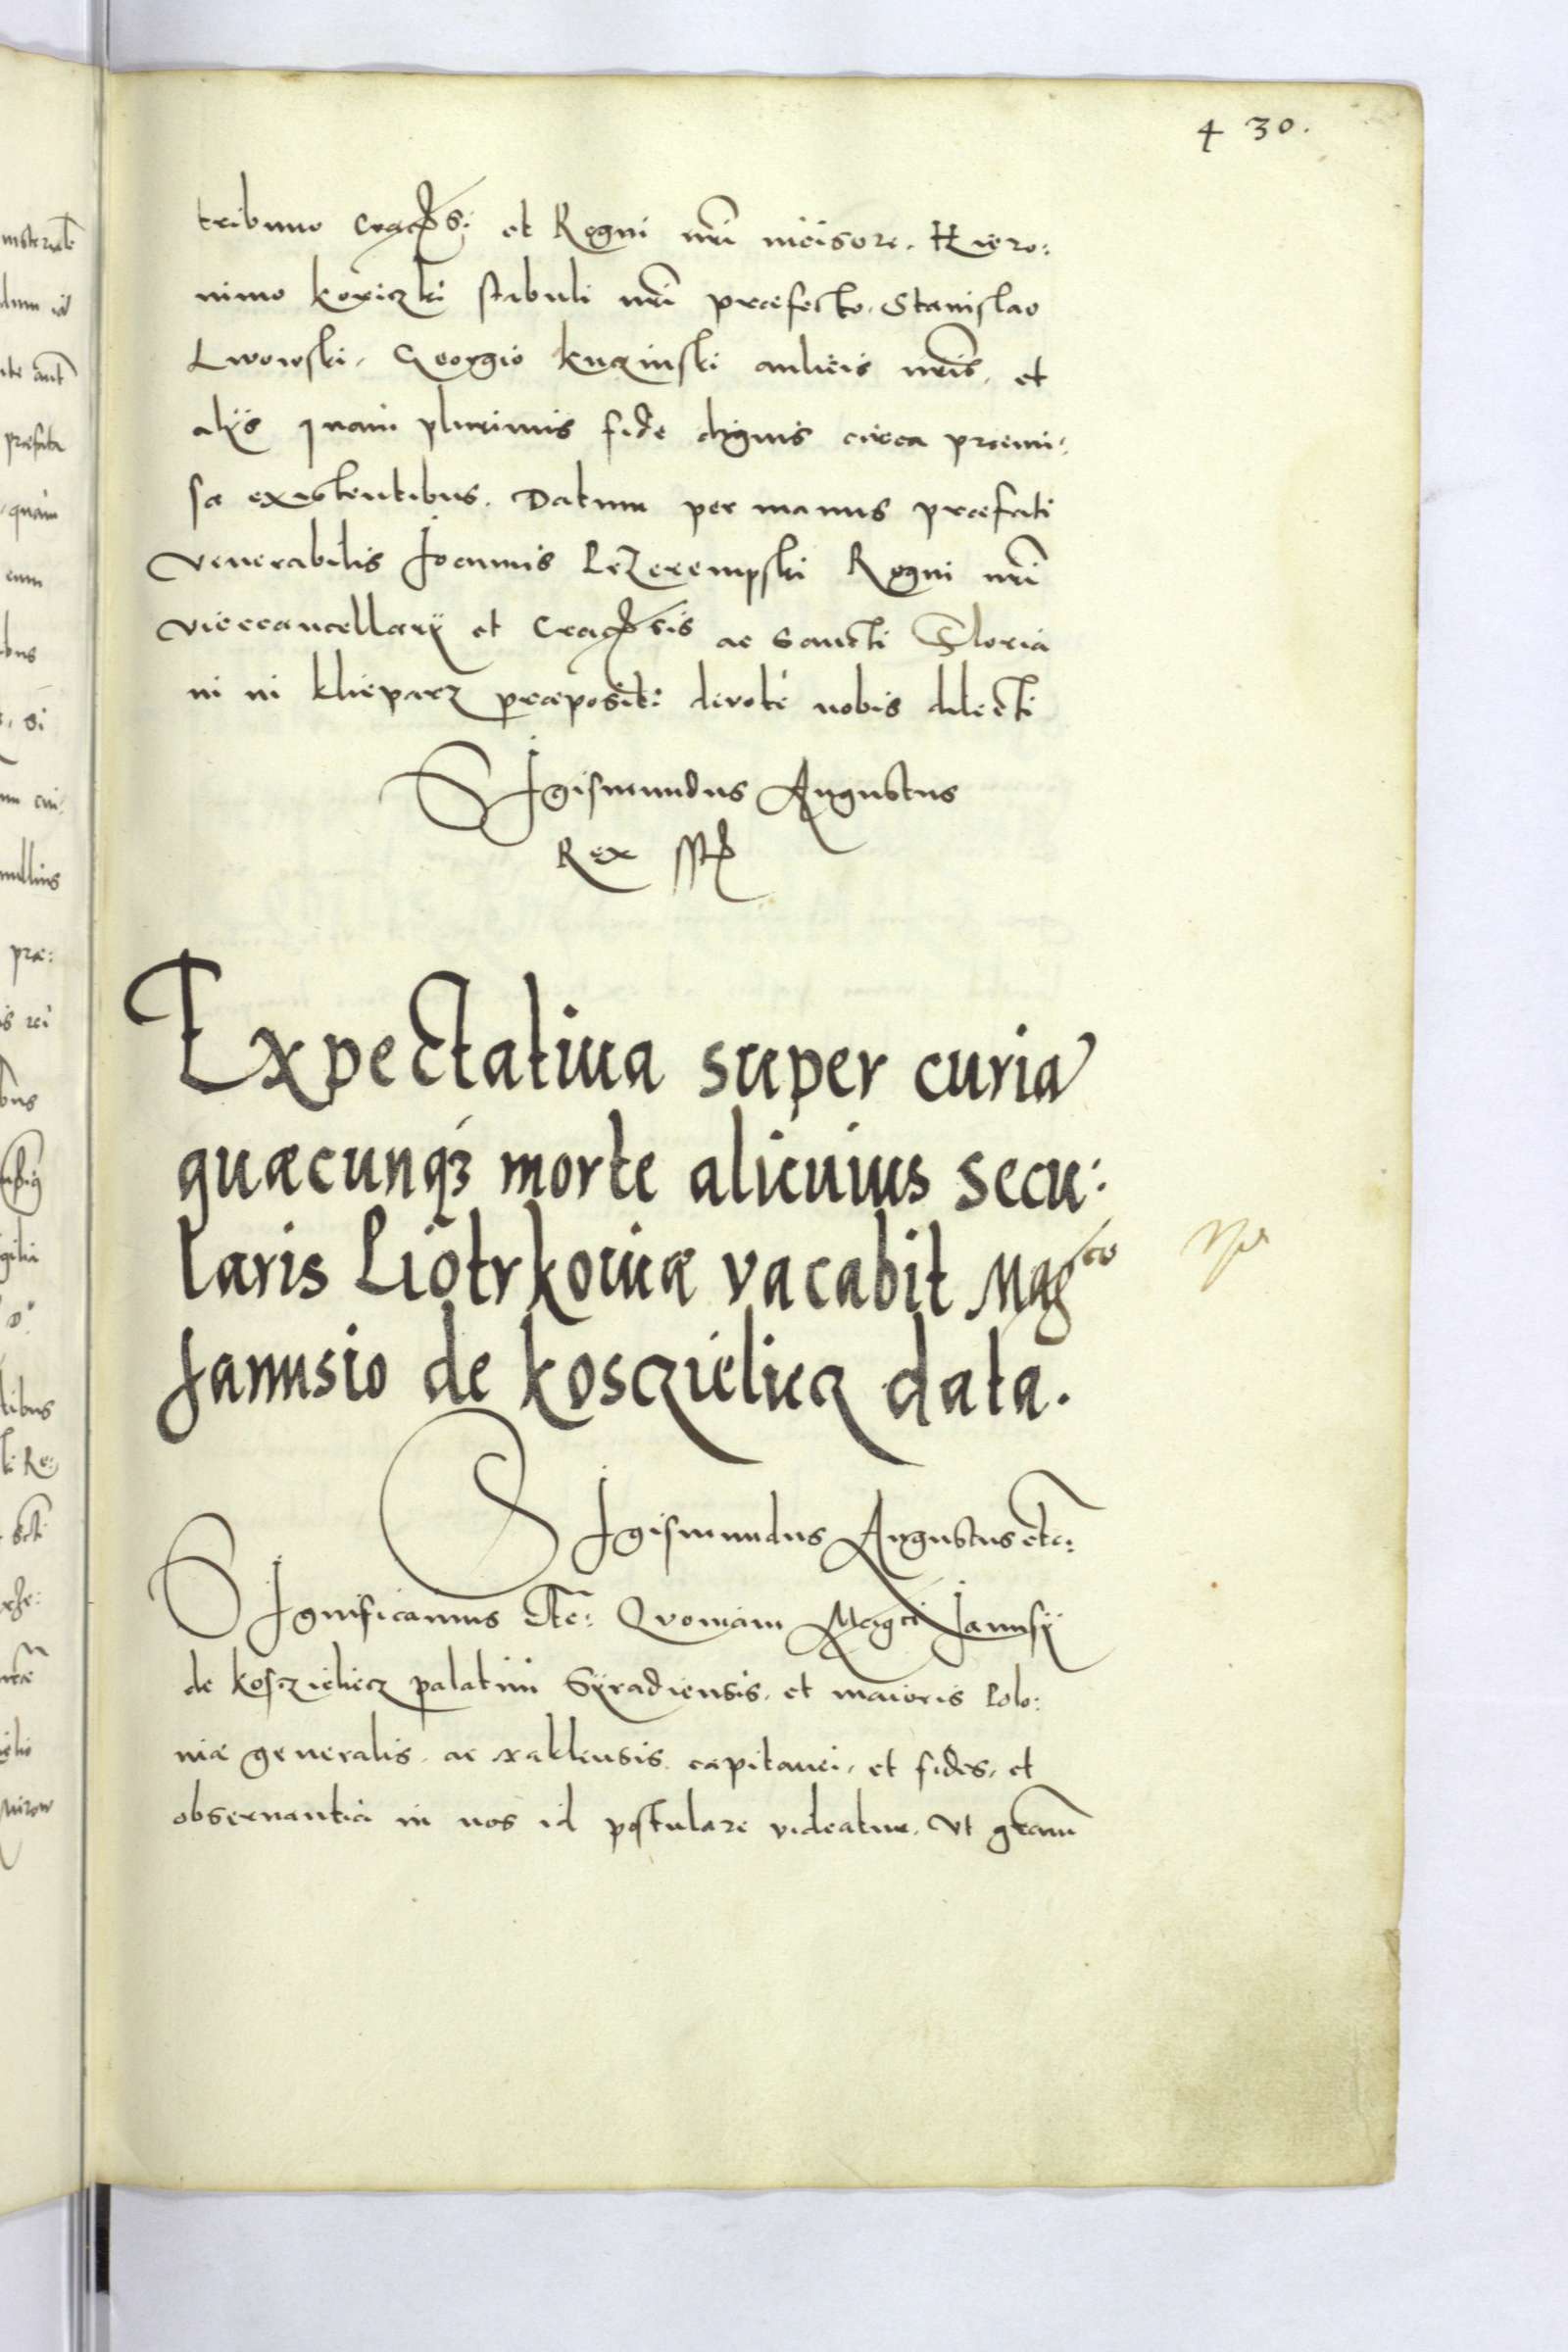 430.
tribuno Cracoviensi et Regni nri incisore. Hiero:
nimo Koriczki stabuli nri præfecto. Stanislao
Lwowski. Georgio Kuczinski aulicis nris. et
alÿs quam plurimis fide dignis circa præmi:
sa existentibus. Datum per manus præfati
venerabilis Joannis Przerempski Regni nri
vicecancellarÿ et Cracoviensis ac Sancti Floria
ni in Klieparz præpositi devote nobis dilecti
Sigismundus Augustus
Rex
Expectativa super curia
quæcunq3 morte alicuius secu:
laris Piotrkoviæ vacabit Magco
Janusio de Kosczieliecz data.
Sigismundus Augustus etc:
Significamus etc: Quoniam Magci Janusÿ
de Kosczieliecz palatini Syradiensis. et maioris Polo:
niæ generalis. ac naklensis capitanei. et fides. et
observantia in nos id postulare videatur. Vt gratam